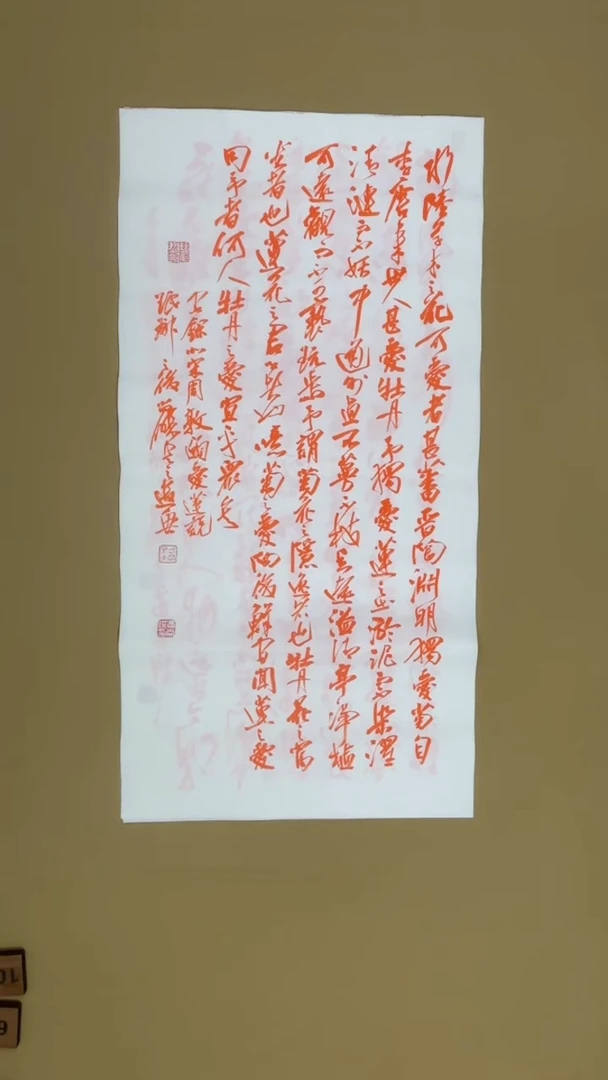 水陸草木之花可愛者甚蕃晉陶淵明獨愛菊自
李唐來世人甚愛牡丹予獨愛蓮之出淤泥而不染濯
清漣而不妖中通外直不蔓不枝香遠溢清亭亭淨植
可遠觀而不可褻玩焉予謂菊花之隱逸者也牡丹花之富
貴者也蓮花之君子者也噫菊之愛陶後鮮有聞蓮之愛
同予者何人牡丹之愛宜乎眾矣
周敦頤愛蓮說
10